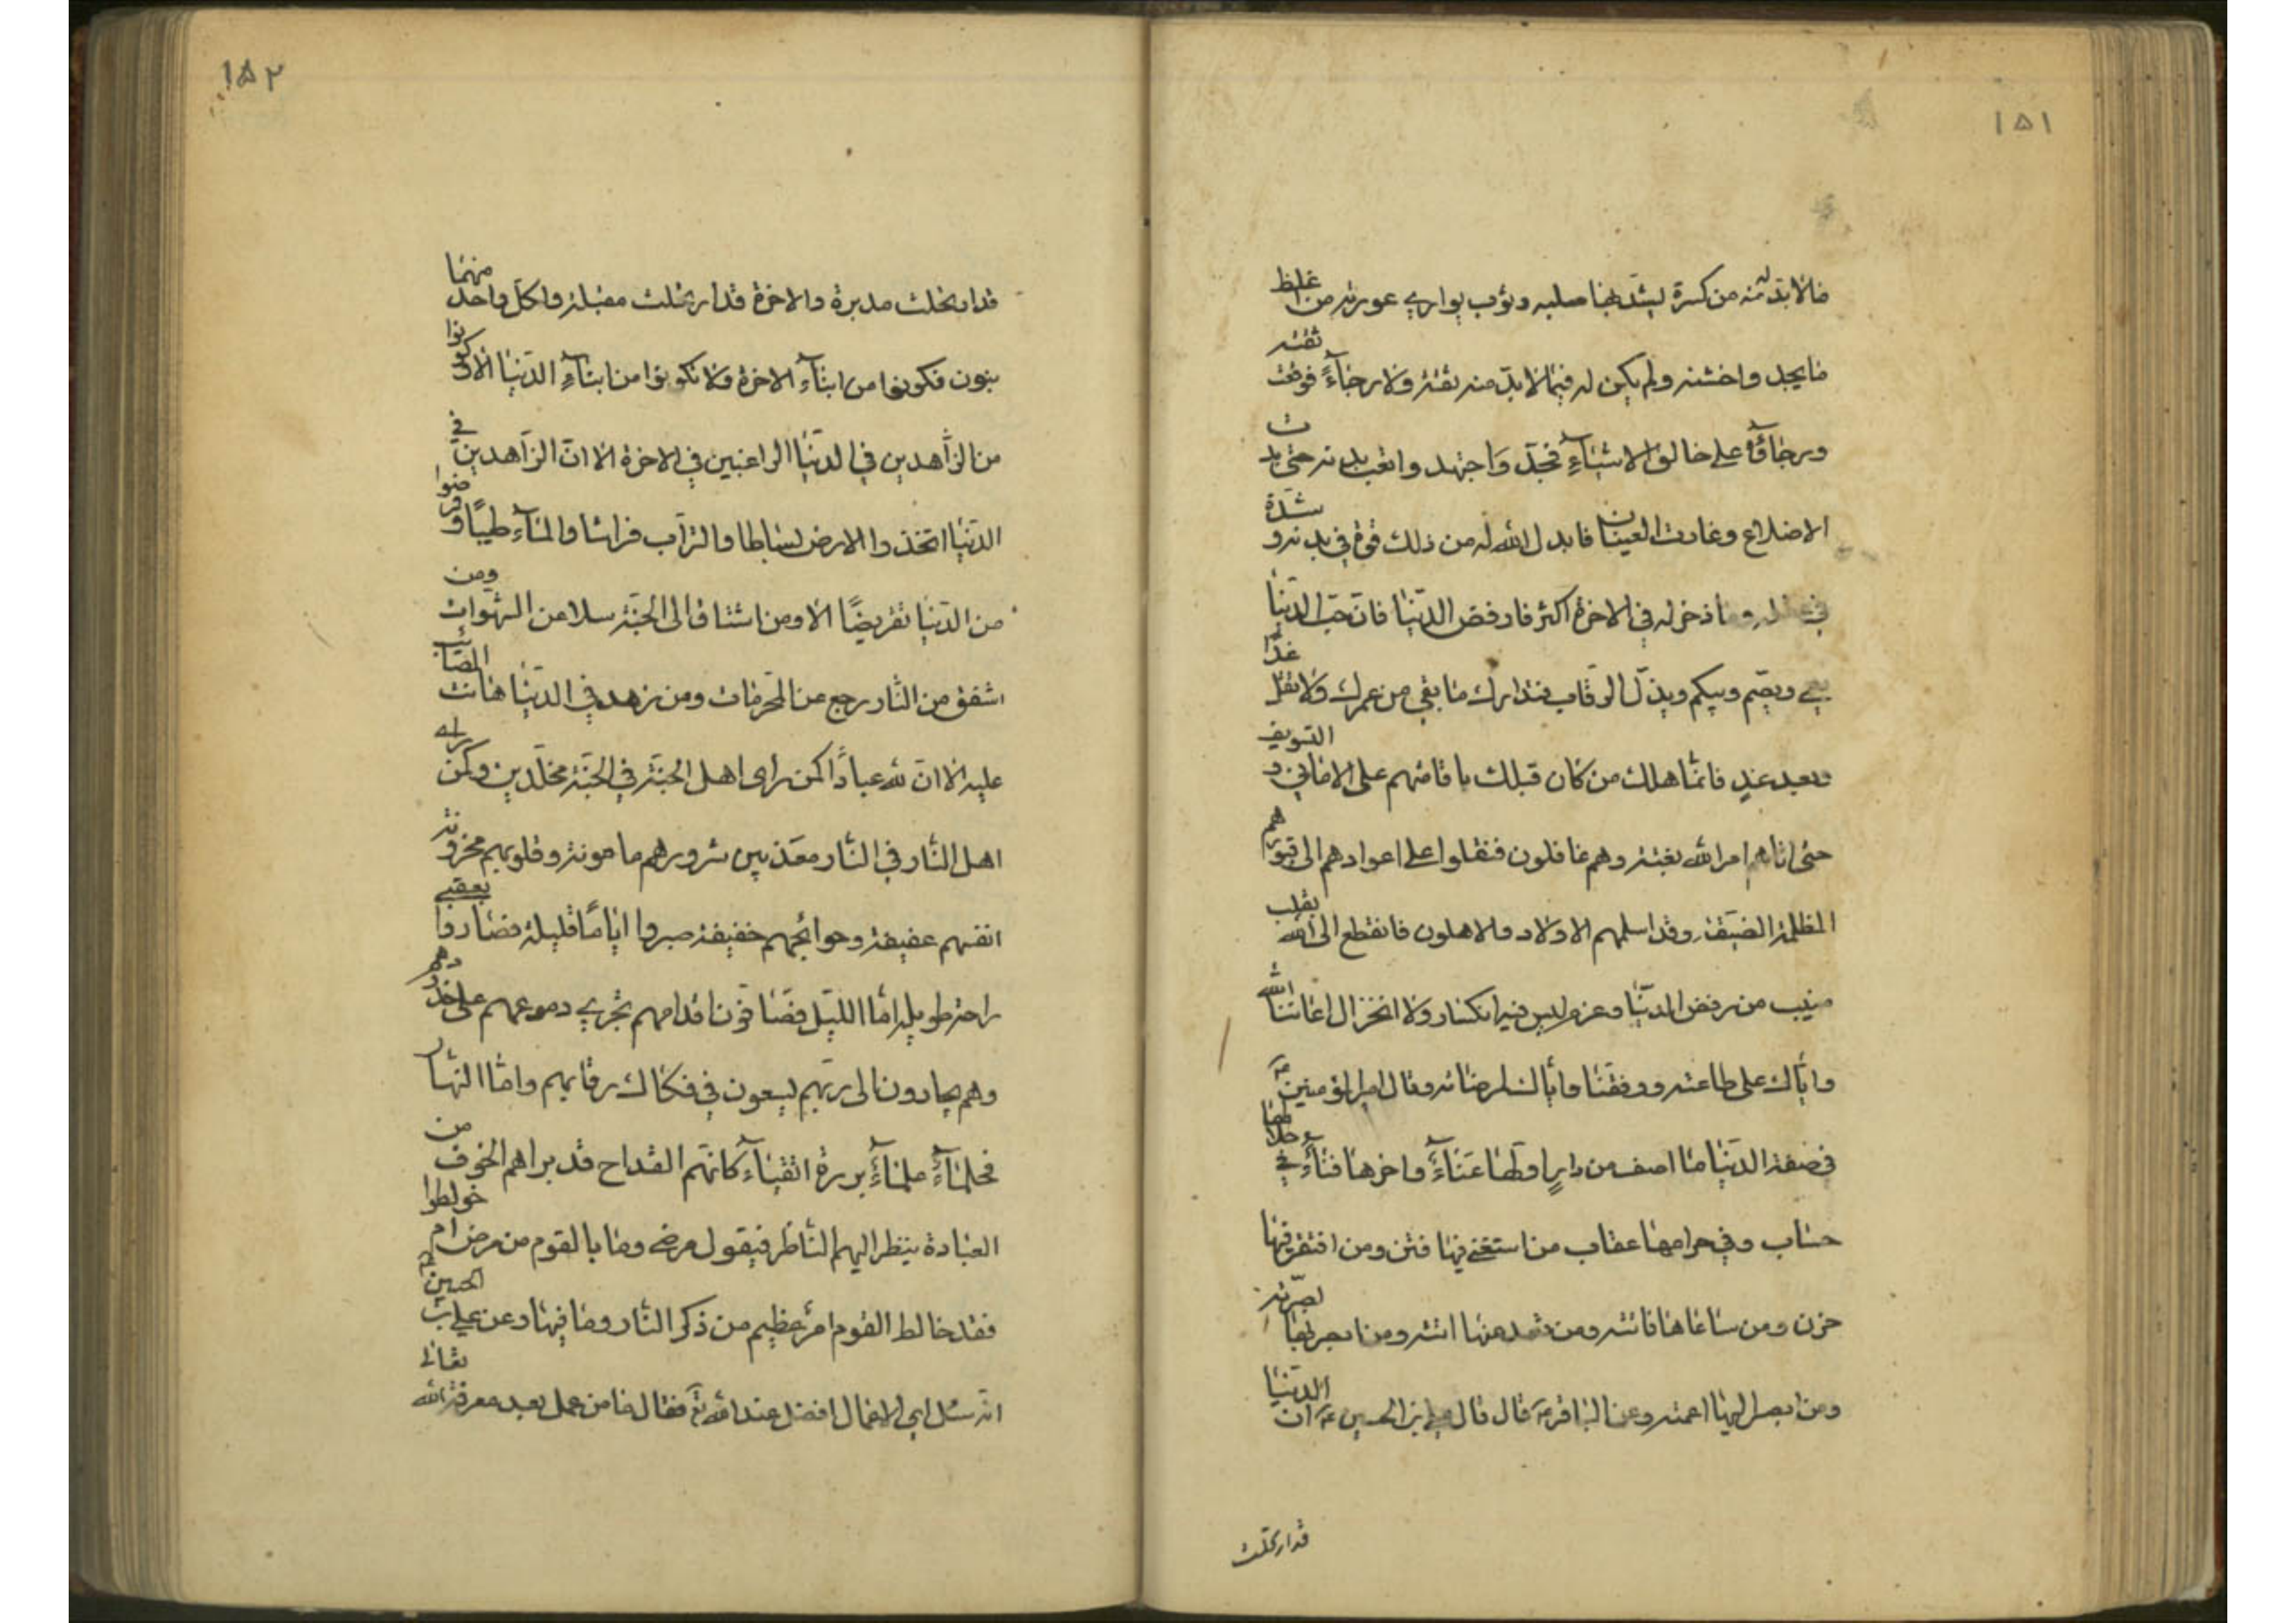 ١٥١
فالا بد له منه من كسرة ليشد بها صلبه وثوب يواري به عورته من اغلظ
ما يجد واخشنه ولم يكن له فيما لا بد منه ثقة ولا رجاء فوقعت ثقته
ورجاؤه على خالق الاشياء فجد واجتهد واتعب بدنه حتى بدت
الاضلاع وغارت العينان فابدل الله له من ذلك قوة في بدنه وشدة
في عقله وما ذخر له في الاخرة اكثر فارفض الدنيا فان حب الدنيا
يعمي ويصم ويبكم ويذل الرقاب فتدارك ما بقي من عمرك ولا تقل غدا
وبعد غد فانما هلك من كان قبلك باقامتهم على الاماني والتسويف
حتى اتاهم امر الله بغتة وهم غافلون فنقلوا على اعوادهم الى قبورهم
المظلمة الضيقة وقد اسلمهم الاولاد والاهلون فانقطع الى الله بقلب
منيب من رفض الدنيا وعزم ليس فيه انكسار ولا انخزال اعاننا الله
واياك على طاعته ووفقنا واياك لمرضاته وقال امير المؤمنين ع
في صفة الدنيا ما اصف من دار اولها عناء واخرها فناء في حلالها
حساب وفي حرامها عقاب من استغنى فيها فتن ومن افتقر فيها
حزن ومن ساعاها فاتته ومن قعد عنها اتته ومن ابصر بها بصرته
ومن ابصر اليها اعمته وعن الباقر ع قال قال علي بن الحسين ع ان الدنيا
قد ارتحلت
١٥٢
قد ارتحلت مدبرة والاخرة قد ارتحلت مقبلة ولكل واحد منهما
بنون فكونوا من ابناء الاخرة ولا تكونوا من ابناء الدنيا الا كونوا
من الزاهدين في الدنيا الراغبين في الاخرة الا ان الزاهدين في
الدنيا اتخذوا الارض بساطا والتراب فراشا والماء طيبا وقرضوا
من الدنيا تقريضا الا ومن اشتاق الى الجنة سلا من الشهوات ومن
اشفق من النار رجع عن المحرمات ومن زهد في الدنيا هانت المصائب
عليه الا ان لله عبادا كمن راى اهل الجنة في الجنة مخلدين وكمن راى
اهل النار في النار معذبين شرورهم مامونة وقلوبهم محزونة
انفسهم عفيفة وحوائجهم خفيفة صبروا اياما قليلة فصاروا بعقبى
راحة طويلة اما الليل فصافون اقدامهم تجري دموعهم على خدودهم
وهم يجارون الى ربهم يسعون في فكاك رقابهم واما النهار
فحلماء علماء بررة اتقياء كانهم القداح قد براهم الخوف من
العبادة ينظر اليهم الناظر فيقول مرضى وما بالقوم من مرض ام خولطوا
فقد خالط القوم امر عظيم من ذكر النار وما فيها وعن علي بن الحسين ع
انه سئل اي الاعمال افضل عند الله تع فقال ما من عمل بعد معرفة الله تعالى